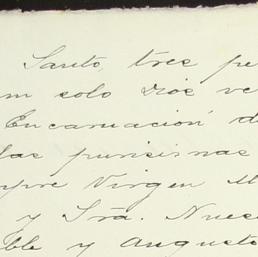 Santo, tres pe
m solo Dios ve
Encarnación d
las purisimas
pre Virgen M
y Sra. Nues
ble y Augusto